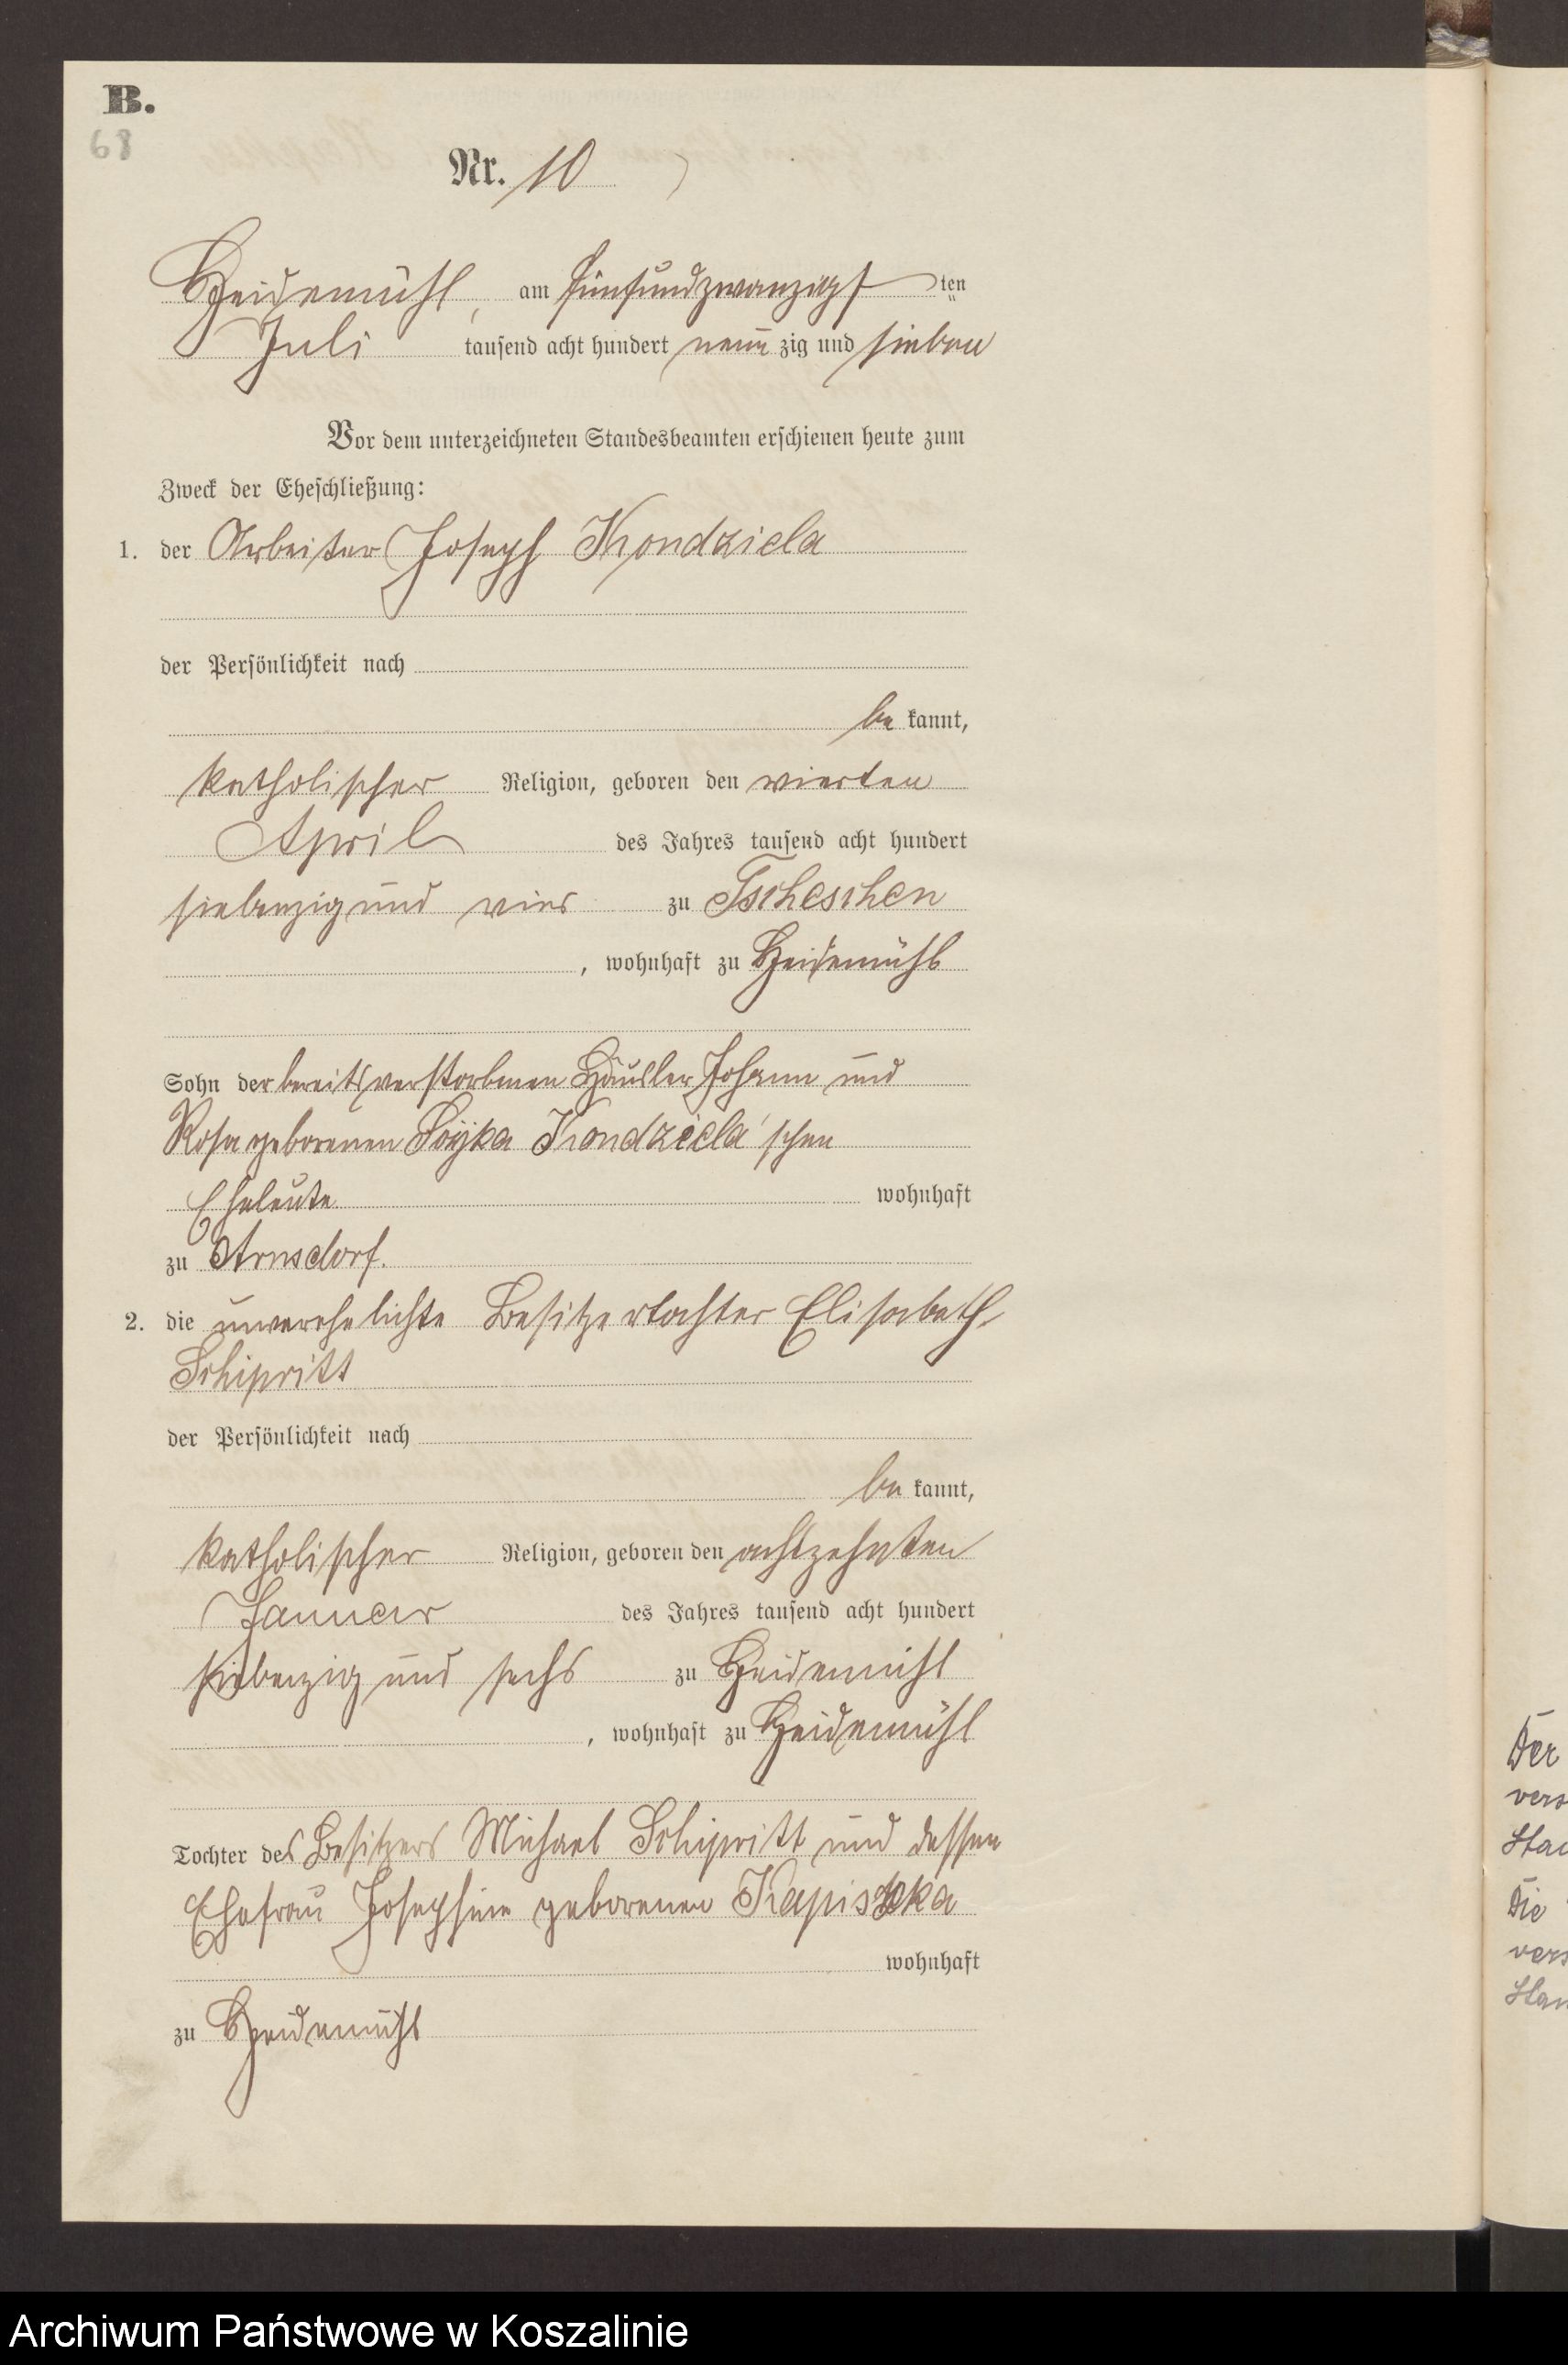 B.
68
Nr. 10
Heidemühl, am fünfundzwanzigsten
Juli tausend acht hundert neunzig und sieben
Vor dem unterzeichneten Standesbeamten erschienen heute zum
Zweck der Eheschließung:
1. der Arbeiter Joseph Kondziela
der Persönlichkeit nach
be kannt,
katholischer Religion, geboren den vierten
April des Jahres tausend acht hundert
siebenzig und vier zu Tscheschen
, wohnhaft zu Heidemühl
Sohn der bereits verstorbenen Häusler Johann und
Rosa geborenen Soyka Kondziela'schen
Eheleute wohnhaft
zu Arnsdorf.
2. die unverehelichte Besitzertochter Elisabeth
Schipritt
der Persönlichkeit nach
be kannt,
katholischer Religion, geboren den achtzehnten
Januar des Jahres tausend acht hundert
siebenzig und sechs zu Heidemühl
, wohnhaft zu Heidemühl
Tochter des Besitzers Michael Schipritt und dessen
Ehefrau Josephine geborenen Kapiszka
wohnhaft
zu Heidemühl
Der
vers
Stan
Die
vers
Stan
Archiwum Państwowe w Koszalinie